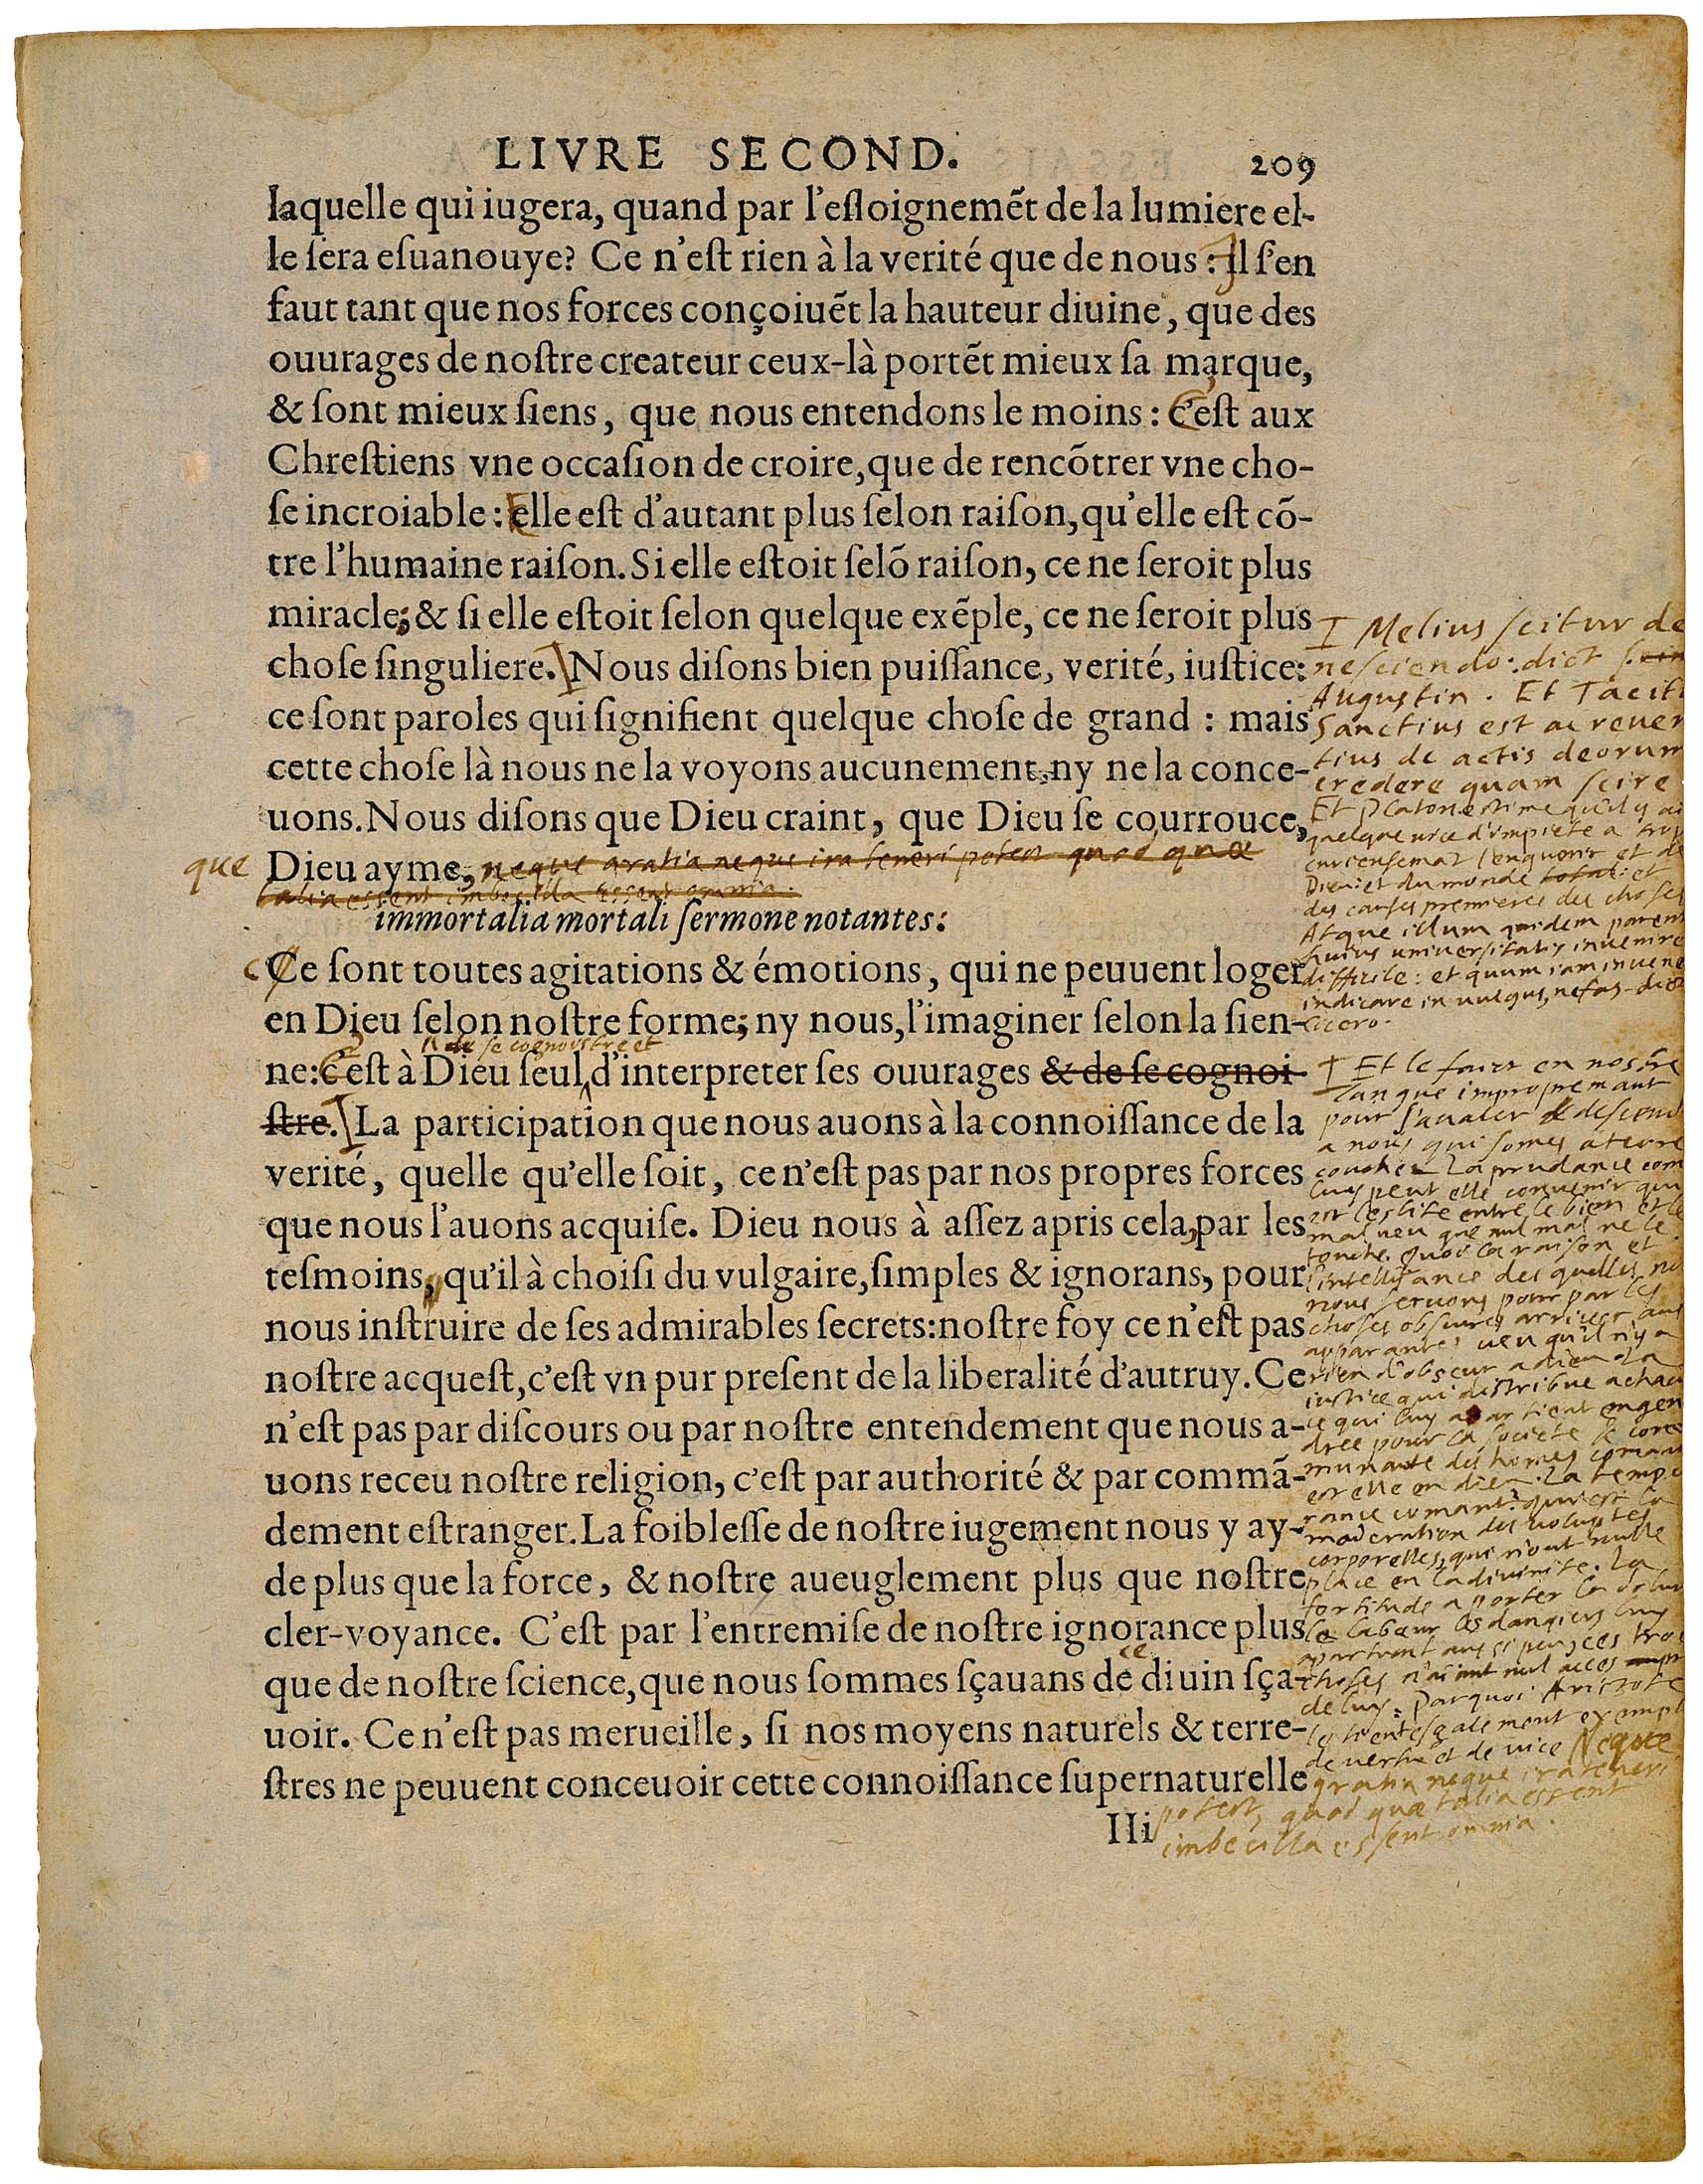 LIVRE SECOND.
209
laquelle qui iugera, quand par l'esloignemẽt de la lumiere el-
le sera esuanouye? Ce n'est rien à la verité que de nous : Il s'en
faut tant que nos forces conçoiuẽt la hauteur diuine, que des
ouurages de nostre createur ceux-là portẽt mieux sa marque,
& sont mieux siens, que nous entendons le moins : C'est aux
Chrestiens vne occasion de croire, que de rencõtrer vne cho-
se incroiable : Elle est d'autant plus selon raison, qu'elle est cõ-
tre l'humaine raison. Si elle estoit selõ raison, ce ne seroit plus
miracle; & si elle estoit selon quelque exẽple, ce ne seroit plus
chose singuliere. Nous disons bien puissance, verité, iustice:
ce sont paroles qui signifient quelque chose de grand : mais
cette chose là nous ne la voyons aucunement, ny ne la conce-
uons. Nous disons que Dieu craint, que Dieu se courrouce,
que Dieu ayme, neque gratia neque ira teneri potest quod quæ
talia essent imbecilla essent omnia.
immortalia mortali sermone notantes:
Ce sont toutes agitations & émotions, qui ne peuuent loger
en Dieu selon nostre forme; ny nous, l'imaginer selon la sien-
de se cognoistre et
ne: C'est à Dieu seul, d'interpreter ses ouurages & de se cognoi-
stre. La participation que nous auons à la connoissance de la
verité, quelle qu'elle soit, ce n'est pas par nos propres forces
que nous l'auons acquise. Dieu nous à assez apris cela, par les
tesmoins, qu'il à choisi du vulgaire, simples & ignorans, pour
nous instruire de ses admirables secrets: nostre foy ce n'est pas
nostre acquest, c'est vn pur present de la liberalité d'autruy. Ce
n'est pas par discours ou par nostre entendement que nous a-
uons receu nostre religion, c'est par authorité & par commã-
dement estranger. La foiblesse de nostre iugement nous y ay-
de plus que la force, & nostre aueuglement plus que nostre
cler-voyance. C'est par l'entremise de nostre ignorance plus
ce
que de nostre science, que nous sommes sçauans de diuin sça-
uoir. Ce n'est pas merueille, si nos moyens naturels & terre-
stres ne peuuent conceuoir cette connoissance supernaturelle
IIi
Melius scitur de
nesciendo: dict S.
Augustin. Et Tacit
Sanctius est ac reuer
tius de actis deorum
credere quam scire
Et Platon estime qu'il y ai
quelque vice d'impieté a trop
curieusemat l'enquerir et de
Dieu et du monde et
des causes premieres des choses
Atque illum quidem parent
huius uniuersitatis inuenire
difficile: et quum iam inuene
indicare in uulgus, nefas dict
Cicero.
Et le faict en nostre
pour s'aualer & descend
a nous qui somes a terre
couchez La prudance com
luy peut elle conuenir qui
est l'eslite entre le bien et le
mal ueu que nul mal ne le
touche. quoi la raison et
l'intelligance des quelles no
nous seruons pour par les
choses obscures arriuer aus
apparantes ueu qu'il n'y a
rien d'obscur a dieu La
iustice qui distribue a chacu
ce qui luy apartient engen
dree pour la societe & com
munauté des homes comant
est elle en dieu. La tempe
rance comant? qui est la
moderation des voluptes
corporelles, qui n'ont nulle
place en la diuinite. La
fortitude a porter la dolur
le labeur les dangiers luy
apartient aussi peu, ces troi
choses n'aiant nul acces
de luy. Parquoi Aristote
le tient esgalement exempt
de vertu et de vice Neque
gratia neque ira teneri
potest, quod quæ talia essent
imbecilla essent omnia.